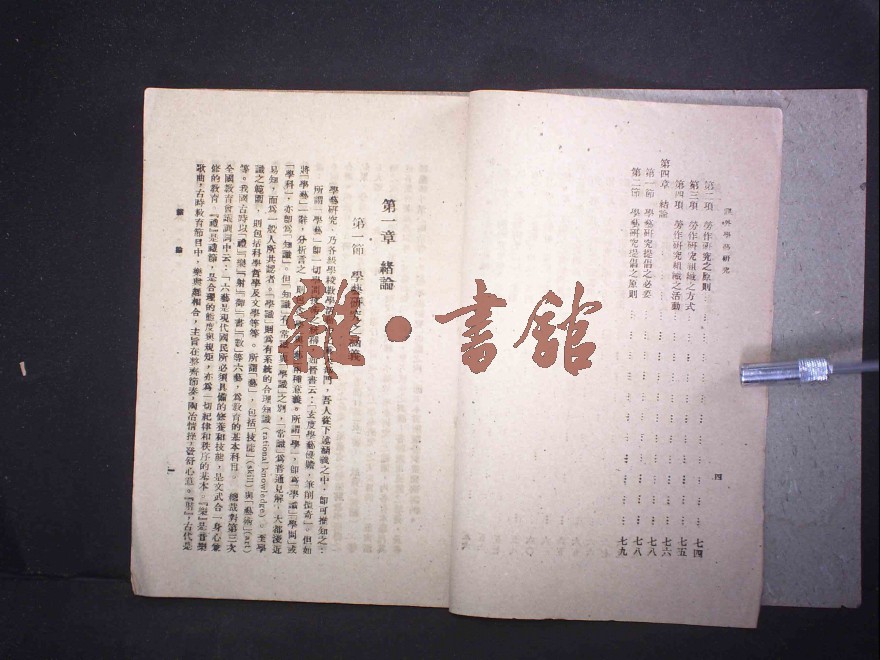 學藝研究
第二項 勞作研究之原則 七四
第三項 勞作研究組織之方式 七五
第四項 勞作研究組織之活動 七六
第四章 結論
第一節 學藝研究提倡之必要 七八
第二節 學藝研究提倡之原則 七九
四
雜·書館
第一章 緒論
第一節 學藝研究之涵義
學藝研究、乃各級學校教學 門，吾人從下述諸義之中，即可推知之：
所謂「學藝」即一切 晉書云：「玄度學藝優贍，筆削擅奇」。但如
將「學藝」二辭，分析言之，則 兩種意義。所謂「學」，即為「學識」「學問」或
「學科」，亦即為「知識」。但「知識」有「常識」與「學識」之別，「常識」為普通見解，大都淺近
易知，而為一般人所共認者。「學識」則為有系統的合理知識(rational knowledge)。至學
識之範圍，則包括科學哲學及文學等等。所謂「藝」，包括「技能」(skill)與「藝術」(art)
等。我國古時以「禮」「樂」「射」「御」「書」「數」等六藝，為教育的基本科目。 總裁對第三次
全國教育會議訓詞中云：「六藝是現代國民所必須具備的修養和技能，是文武合一身心兼
修的教育。『禮』是禮節，是合理的態度與規矩，亦為一切紀律和秩序的基本。『樂』是音樂
歌曲，古時教育節目中，樂與舞相合，主旨在整齊節奏，陶冶情操，發舒心意。『射』，古代是
緒論
一